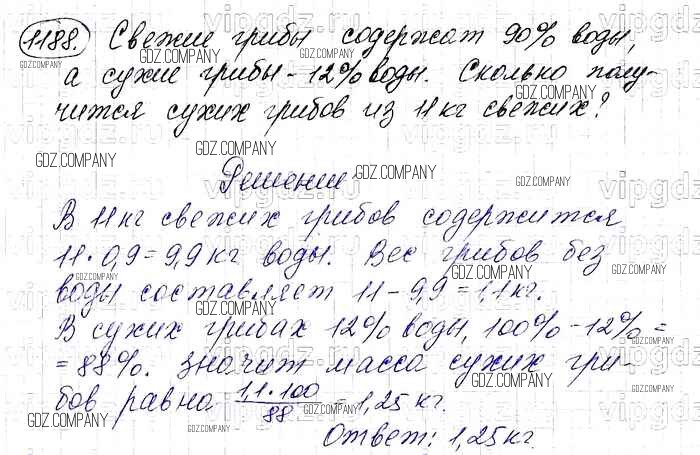 1188. Свежие грибы содержат 90% воды,
а сухие грибы - 12% воды. Сколько полу-
чится сухих грибов из 11 кг свежих?
Решение
В 11 кг свежих грибов содержится
11 · 0,9 = 9,9 кг воды. Вес грибов без
воды составляет 11 - 9,9 = 1,1 кг.
В сухих грибах 12% воды, 100% - 12% =
= 88%. Значит масса сухих гри-
бов равна 1,1 · 100 / 88 = 1,25 кг.
Ответ: 1,25 кг.